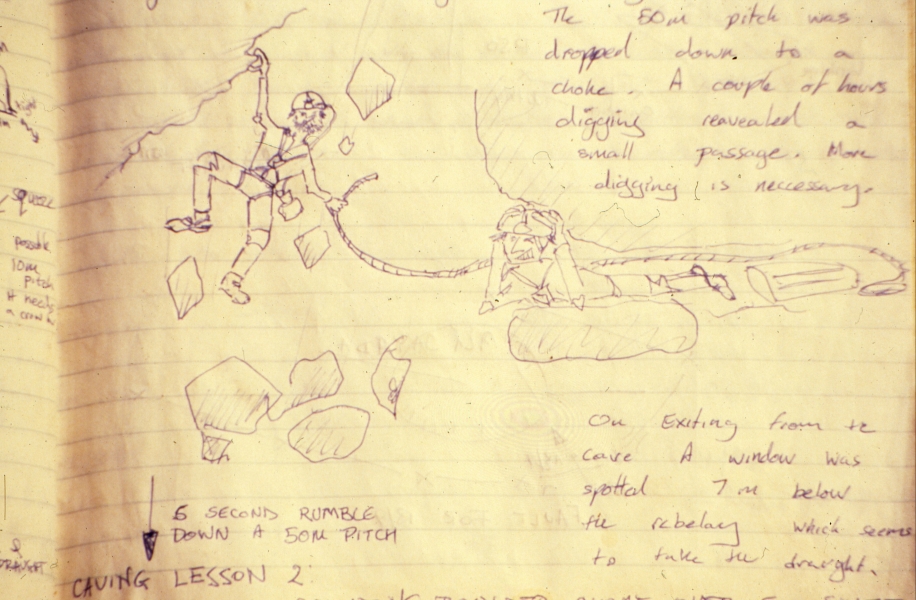 The 50m pitch was
dropped down to a
choke. A couple of hours
digging reavealed a
small passage. More
digging is neccessary.
squeeze
possible
10m
pitch
it needs
a crowba
On Exiting from the
cave A window was
spotted 7m below
the rebelay which seems
to take the draught.
5 SECOND RUMBLE
DOWN A 50M PITCH
CAVING LESSON 2